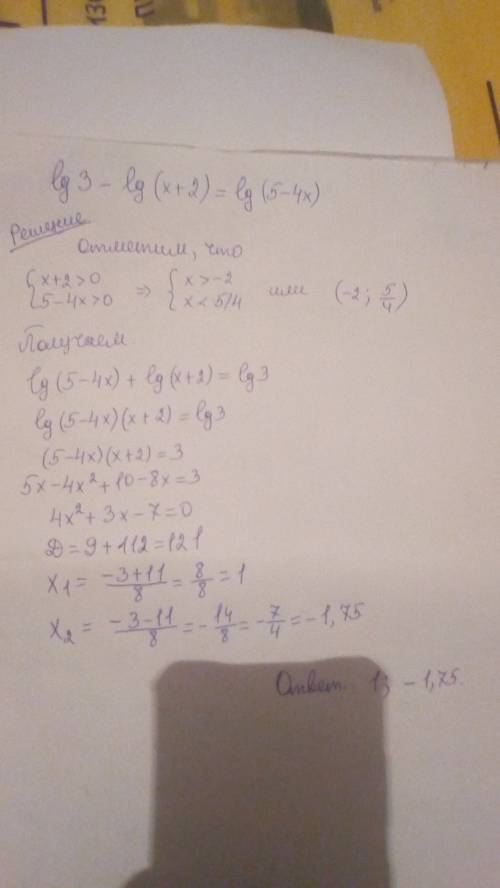 lg 3 - lg (x+2) = lg (5-4x)
Решение
Отметим, что
{ x+2>0 ⇒ { x>-2 или (-2; 5/4)
{ 5-4x>0 { x<5/4
Получаем
lg (5-4x) + lg (x+2) = lg 3
lg (5-4x)(x+2) = lg 3
(5-4x)(x+2) = 3
5x-4x²+10-8x=3
4x²+3x-7=0
D=9+112=121
x₁ = (-3+11)/8 = 8/8 = 1
x₂ = (-3-11)/8 = -14/8 = -7/4 = -1,75
Ответ. 1; -1,75.